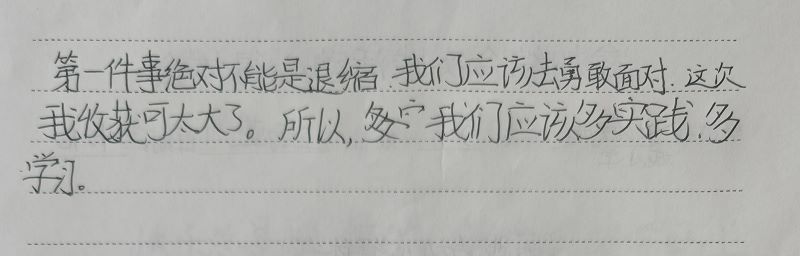 第一件事绝对不能是退缩.我们应该去勇敢面对.这次
我收获可太大了。所以,我们应该多实践.多
学习。